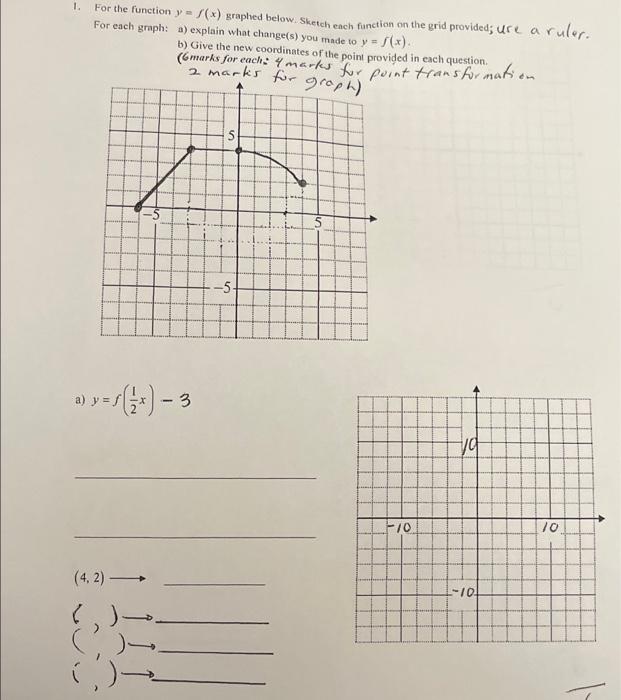 1. For the function y = f(x) graphed below. Sketch each function on the grid provided; use a ruler.
For each graph: a) explain what change(s) you made to y = f(x).
b) Give the new coordinates of the point provided in each question.
(6marks for each: 4 marks for point transformation
2 marks for graph)
5
-5
5
-5
a) y = f(1/2 x) - 3
10
-10
10
-10
(4, 2) →
( , ) →
( , ) →
( , ) →